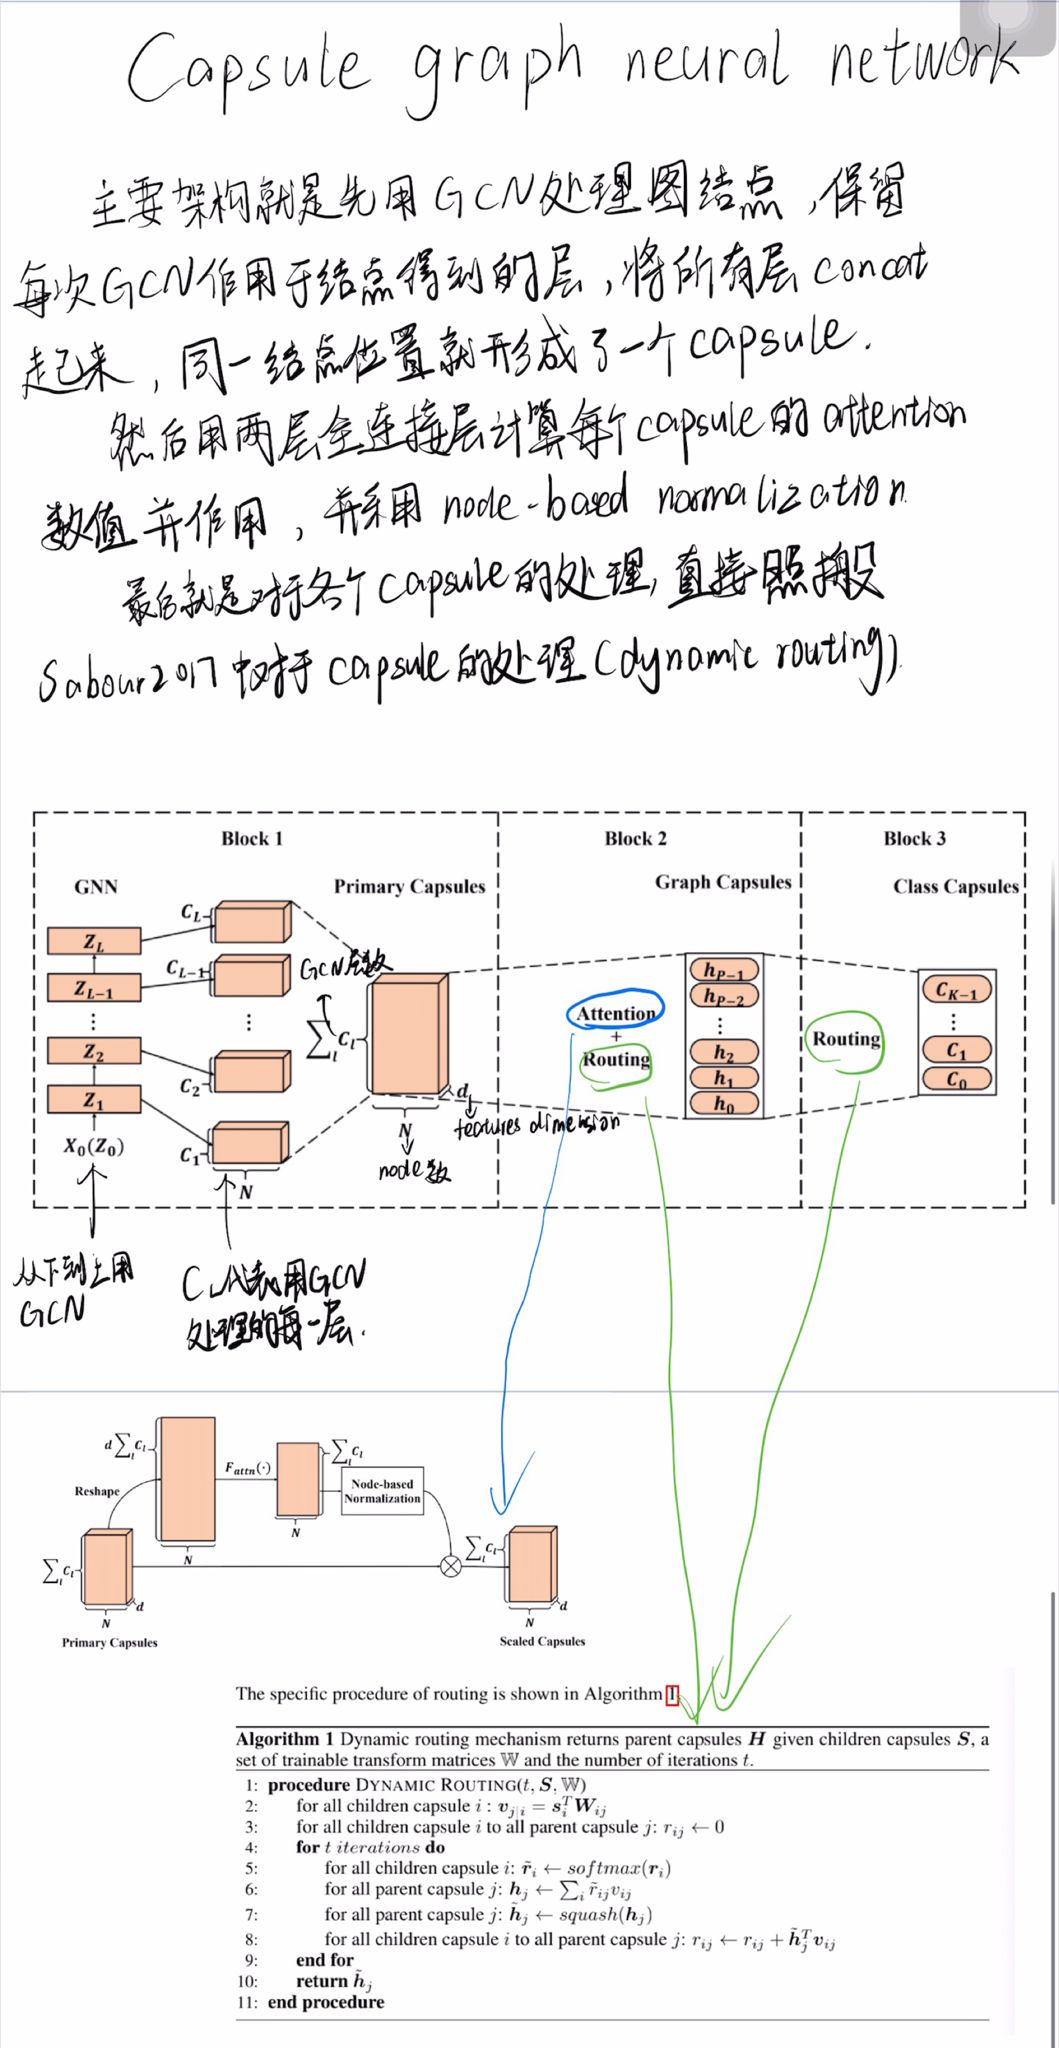 Capsule graph neural network
主要架构就是先用GCN处理图结点,保留
每次GCN作用于结点得到的层,将所有层concat
起来,同一结点位置就形成了一个capsule.
然后用两层全连接层计算每个capsule的attention
数值并作用,并采用node-based normalization
最后就是对于各个capsule的处理,直接照搬
Sabour2017中对于capsule的处理(dynamic routing)
Block 1
Block 2
Block 3
GNN
Primary Capsules
Graph Capsules
Class Capsules
Z_L
Z_{L-1}
⋮
Z_2
Z_1
X_0(Z_0)
C_L
C_{L-1}
⋮
C_2
C_1
N
GCN层数
∑_l C_l
d
features dimension
N
node数
Attention
+
Routing
h_{P-1}
h_{P-2}
⋮
h_2
h_1
h_0
Routing
C_{K-1}
⋮
C_1
C_0
从下到上用
GCN
C_L代表用GCN
处理的每一层.
d∑_l C_l
Reshape
N
F_{attn}(·)
∑_l C_l
N
Node-based
Normalization
∑_l C_l
N
d
Primary Capsules
∑_l C_l
N
d
Scaled Capsules
The specific procedure of routing is shown in Algorithm 1.
Algorithm 1 Dynamic routing mechanism returns parent capsules H given children capsules S, a
set of trainable transform matrices 𝕎 and the number of iterations t.
1: procedure DYNAMIC ROUTING(t, S, 𝕎)
2: for all children capsule i : v_{j|i} = s_i^T W_{ij}
3: for all children capsule i to all parent capsule j: r_{ij} ← 0
4: for t iterations do
5: for all children capsule i: r̃_i ← softmax(r_i)
6: for all parent capsule j: h_j ← ∑_i r̃_{ij}v_{ij}
7: for all parent capsule j: h̃_j ← squash(h_j)
8: for all children capsule i to all parent capsule j: r_{ij} ← r_{ij} + h̃_j^T v_{ij}
9: end for
10: return h̃_j
11: end procedure